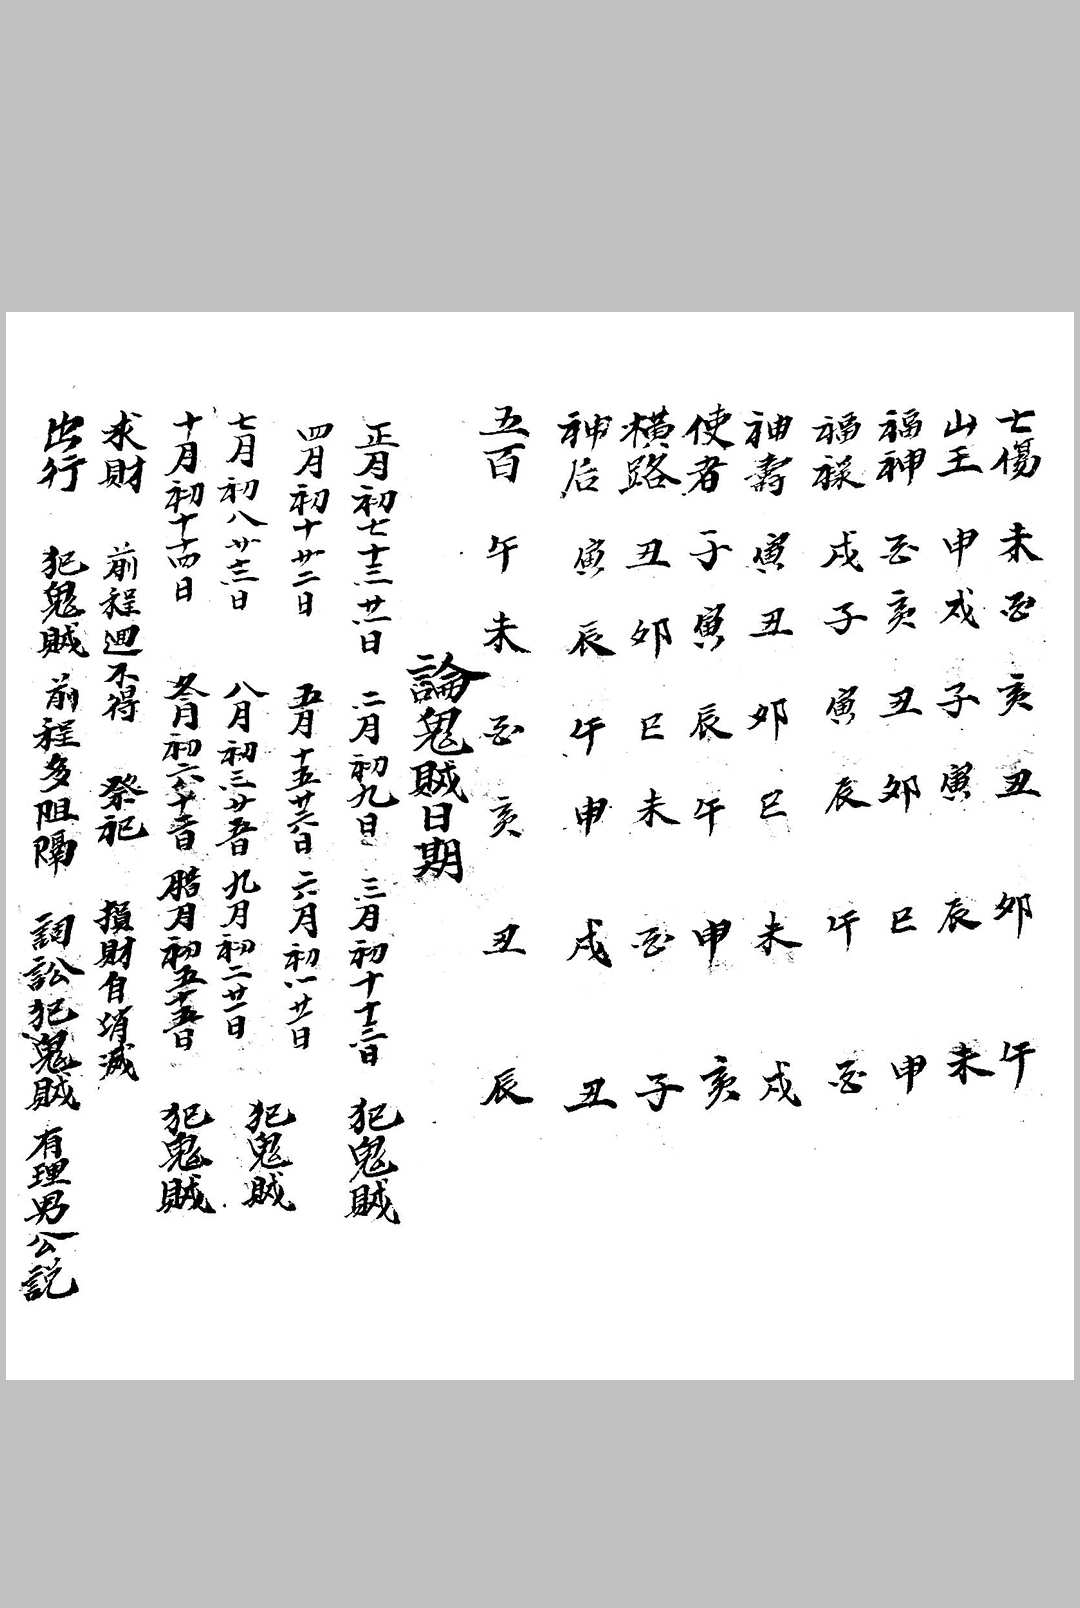 七傷 未 酉 亥 丑 卯 午
山王 申 戌 子 寅 辰 未
福神 酉 亥 丑 卯 巳 申
福祿 戌 子 寅 辰 午 酉
神壽 寅 丑 卯 巳 未 戌
使者 子 寅 辰 午 申 亥
橫路 丑 卯 巳 未 酉 子
神后 寅 辰 午 申 戌 丑
五百 午 未 酉 亥 丑 辰
論鬼賊日期
正月初七十三廿一日 二月初九日 三月初十十三日 犯鬼賊
四月初十廿二日 五月十五廿六日 六月初一廿日
七月初八廿三日 八月初三廿五日 九月初二廿一日 犯鬼賊
十月初十十四日 冬月初六十一日 腊月初五十五日 犯鬼賊
求財 前程迴不得 祭祀 損財自消滅
出行 犯鬼賊 前程多阻隔 詞訟犯鬼賊 有理男公說